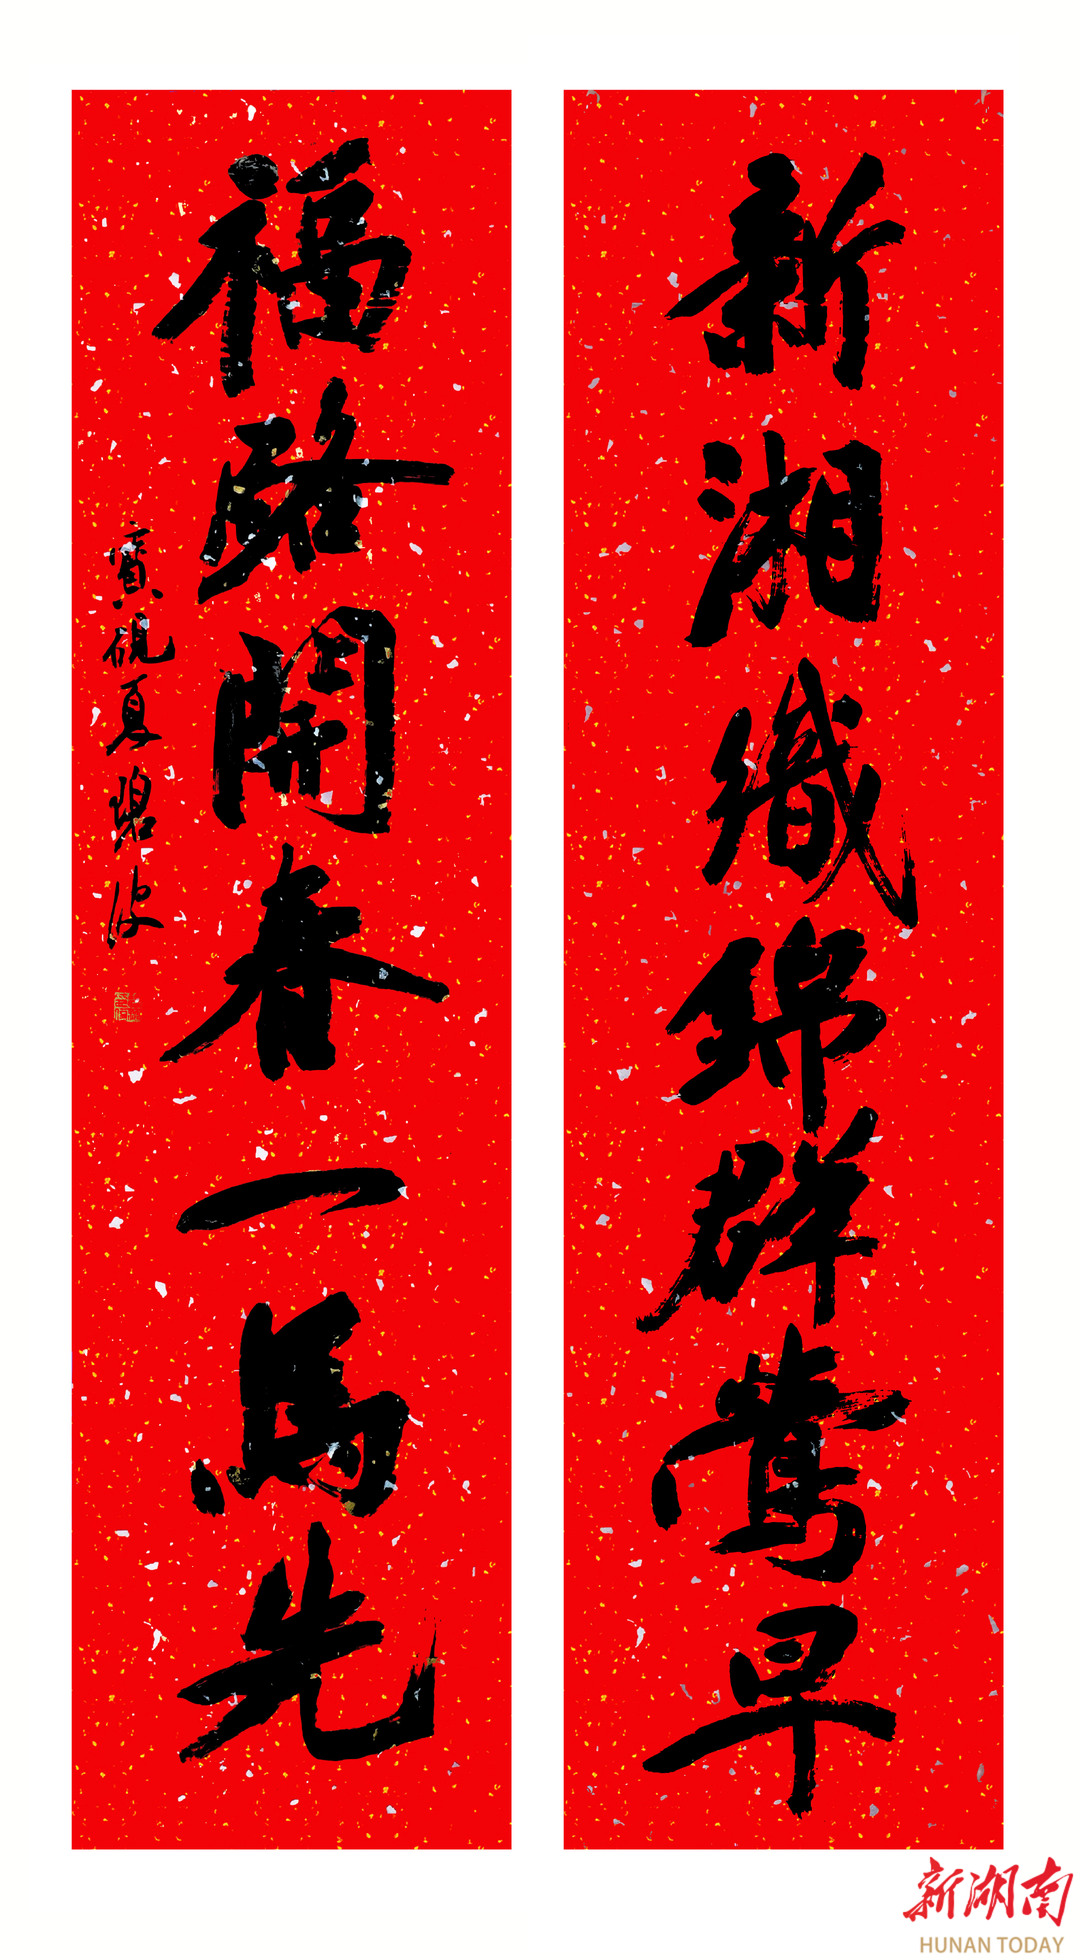 新湘織錦群鶯早
福路開春一馬先
寶硯夏碧波
新湖南
HUNAN TODAY